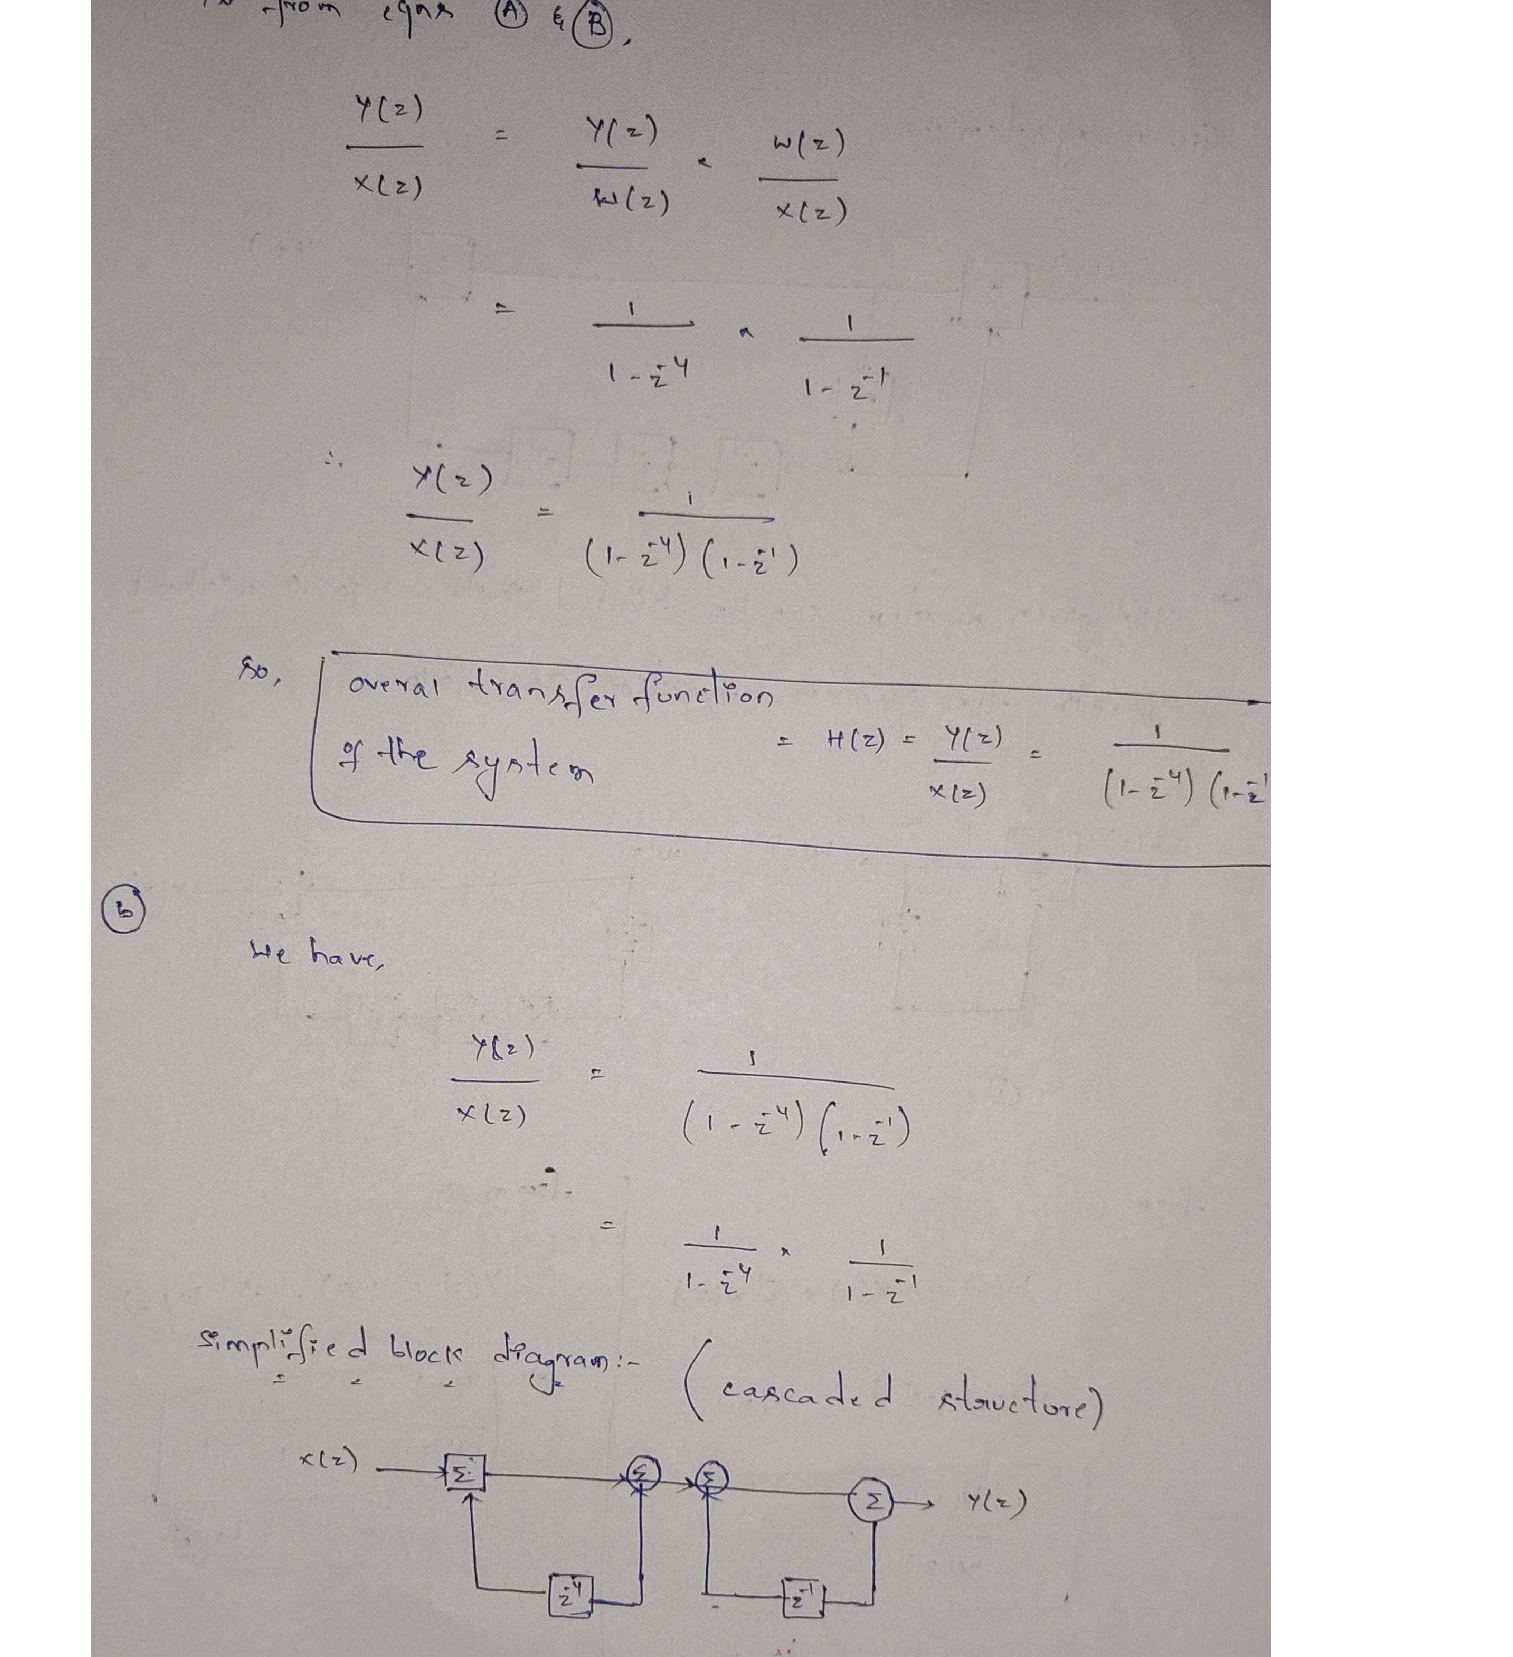 from eqns (A) & (B),
Y(z)/X(z) = Y(z)/W(z) × W(z)/X(z)
= 1/(1-z⁻⁴) × 1/(1-z⁻¹)
∴ Y(z)/X(z) = 1/((1-z⁻⁴)(1-z⁻¹))
So, overal transfer function
of the system = H(z) = Y(z)/X(z) = 1/((1-z⁻⁴)(1-z⁻¹
(b)
We have,
Y(z)/X(z) = 1/((1-z⁻⁴)(1-z⁻¹))
= 1/(1-z⁻⁴) × 1/(1-z⁻¹)
Simplified block diagram:- (cascaded structure)
X(z) Σ Σ Σ Σ Y(z)
z⁻⁴ z⁻¹